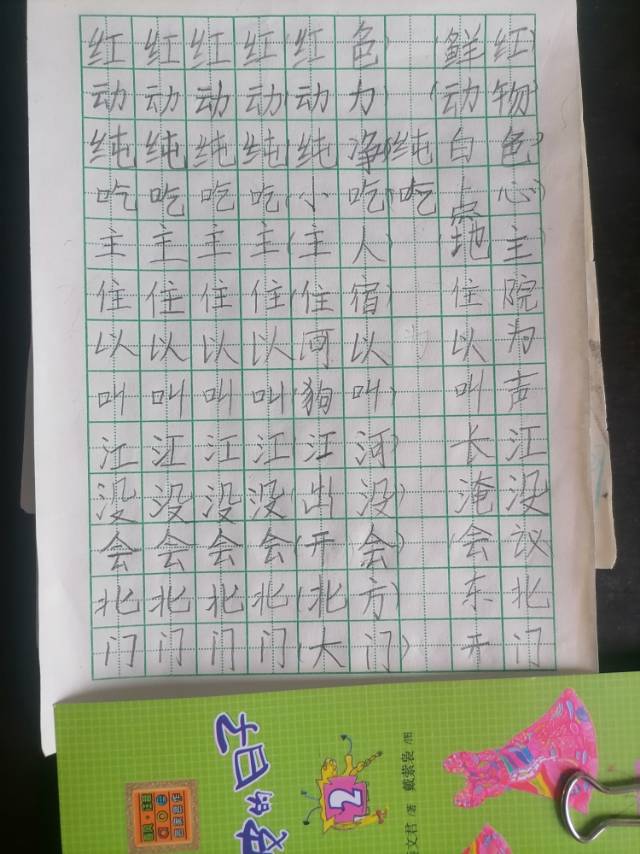 红红红红(红色 (鲜红)
动动动动(动力 (动物)
纯纯纯纯(纯净)(纯白色)
吃吃吃吃(小吃)(吃点心)
主主主主(主人) (地主)
住住住住(住宿) 住院
以以以以(可以) 以为
叫叫叫叫(狗叫) 叫声
江江江江(江河) 长江
没没没没(出没) 淹没
会会会会(开会) 会议
北北北北(北方) 东北
门门门门(大门) 开门
2
文君/著 戴萦袅/图